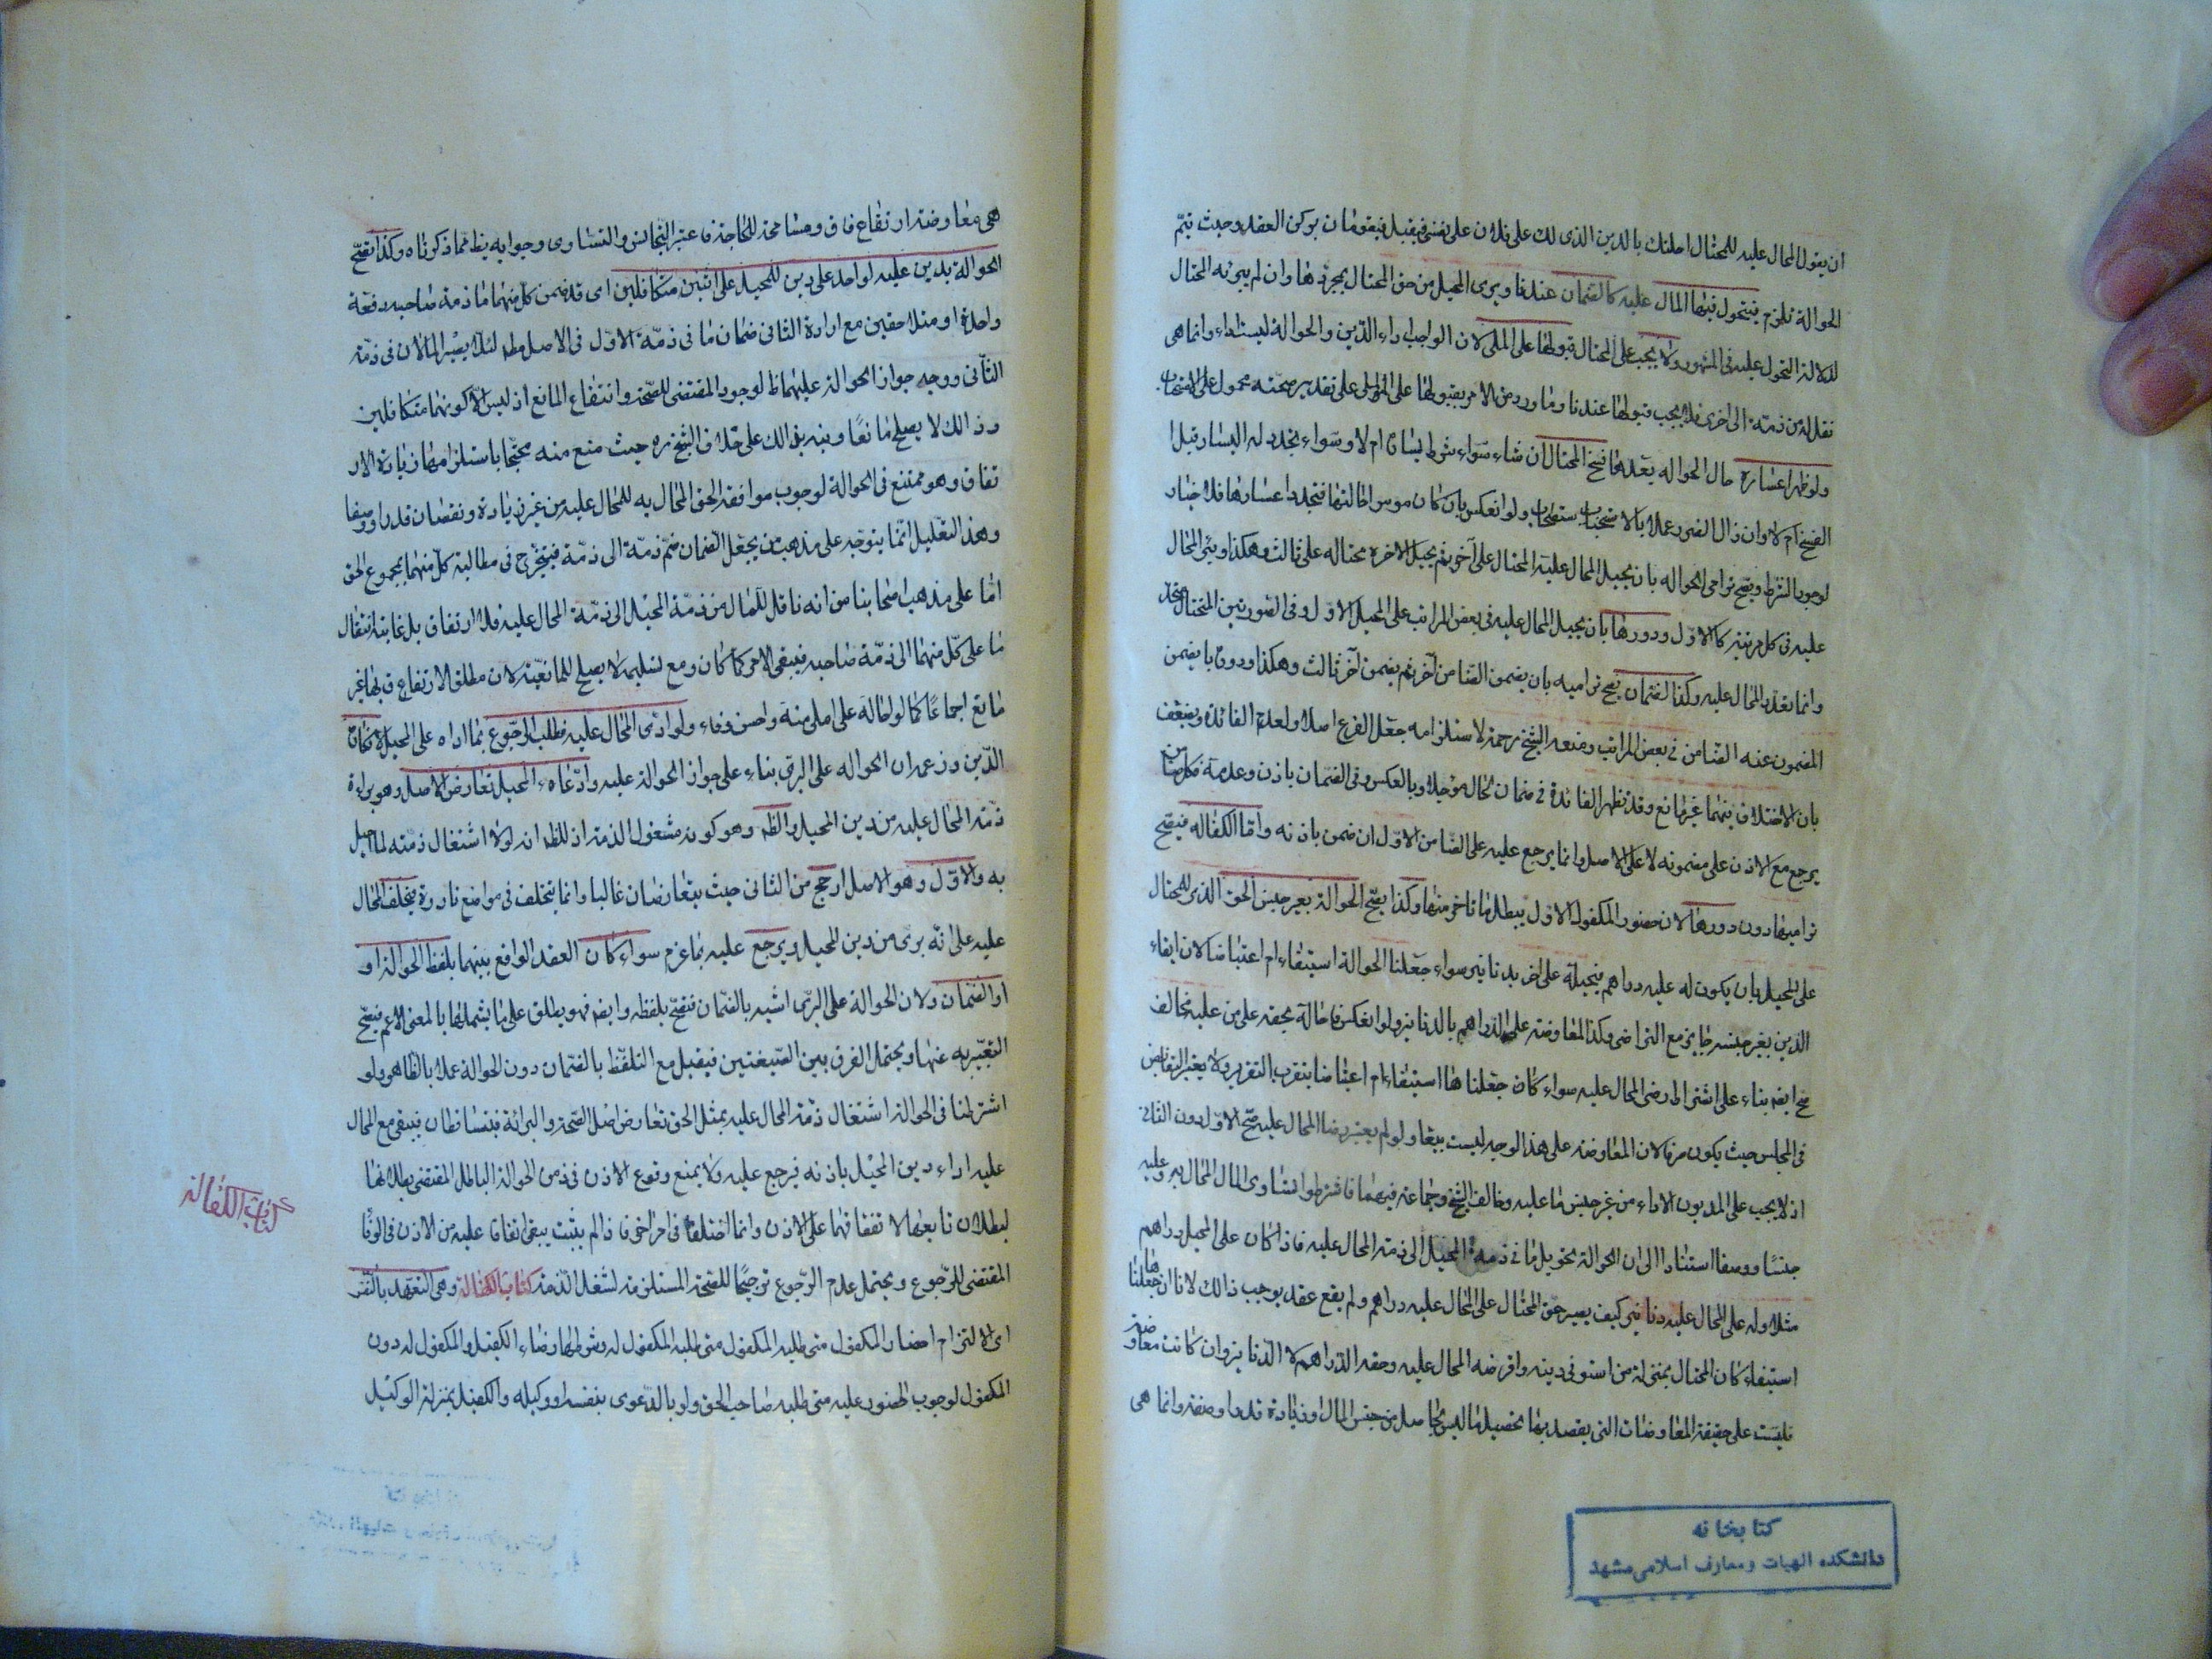 ان يقول المحال عليه للمحتال احلتك بالدين الذى لك على فلان على نفسى فيقبل فيقومان بركن العقد وحيث تتم
الحوالة تلزم فيتحول فيها المال عليه كالضمان عندنا ويبرى المحيل من حق المحتال بمجردها وان لم يبرئه المحتال
لدلالة التحول عليه فى المشهور ولا يجب على المحتال قبولها على الملى لان الواجب اداء الدين والحوالة ليست اداء وانما هى
نقل له من ذمة الى اخرى فلا يجب قبولها عندنا وما ورد من الامر بقبولها على الملى على تقدير صحته محمول على الاستحباب
ولو ظهر اعساره حال الحواله بعدها فسخ المحتال ان شاء سواء شرط يساره ام لا وسواء تجدد له اليسار قبل ا
الفسخ ام لا وان زال الضرر عملا بالاستصحاب ولو انعكس بان كان موسرا حالتها فتجدد اعسارها فلا خيار
لوجود الشرط ويصح ترامى الحواله بان يحيل المحال عليه المحتال على آخر ثم يحيل الاخر محتاله على ثالث وهكذا ويبرئ المحال
عليه فى كل مرتبة كالاول ودورها بان يحيل المحال عليه فى بعض المراتب على المحيل الاول وفى الصورتين المحتال متحد
وانما تعدد المحال عليه وكذا الضمان يصح تراميه بان يضمن الضامن آخر ثم يضمن آخر ثالث وهكذا ودوره بان يضمن
المضمون عنه الضامن فى بعض المراتب ومنعه الشيخ رحمه لاستلزامه جعل الفرع اصلا ولعدم الفائدة ويضعف
بان الاختلاف فيهما غير مانع وقد تظهر الفائدة فى ضمان الحال مؤجلا وبالعكس وفى الضمان باذن وعدمه فكل ضامن
يرجع مع الاذن على مضمونه لا على الاصل وانما يرجع عليه على الضامن الاول ان ضمن باذنه واما الكفاله فيصح
تراميها دون دورها لان حضور المكفول الاول يبطل ما تاخر منها وكذا يصح الحوالة بغير جنس الحق الذى للمحتال
على المحيل بان يكون له عليه دراهم فيحيله على اخر بدنانير سواء جعلنا الحوالة استيفاء ام اعتياضا لان ايفاء
الدين بغير جنسه جايز مع التراضى وكذا المعاوضة على الدراهم بالدنانير ولو انعكس فاحاله بحقه على من عليه مخالف
صح ايضا بناء على اشتراط رضى المحال عليه سواء كان جعلنا ها استيفاء ام اعتياضا بتقريب التقرير ولا يعتبر التقابض
فى المجلس حيث يكون صرفا لان المعاوضة على هذا الوجه ليست بيعا ولو لم يعتبر رضا المحال عليه صح الاول دون الثانى
اذ لا يجب على المديون الاداء من غير جنس ما عليه وخالف الشيخ وجماعة فيهما فاشترطوا تساوى المال المحال به وعليه
جنسًا ووصفا استنادا الى ان الحوالة تحويل ما فى ذمة المحيل الى ذمة المحال عليه فاذا كان على المحيل دراهم
مثلا وله على المحال عليه دنانير كيف يصير حق المحتال على المحال عليه دراهم ولم يقع عقد يوجب ذالك لانا ان جعلناها
استيفاء كان المحتال بمنزلة من استوفى دينه واقرضه المحال عليه وحقه الدراهم لا الدنانير وان كانت معاوضة
فليست على حقيقة المعاوضات التى يقصد بها تحصيل ما ليس بحاصل من جنس المال او زيادة قدر او صفة وانما هى
كتابخانه
دانشكده الهيات ومعارف اسلامى مشهد
هى معاوضة ارتفاق ومسامحة للحاجة فاعتبر التجانس والتساوى وجوابه يظهر مما ذكرناه وكذا تصح
الحوالة بدين عليه لواحد على دين للمحيل على اثنين متكافلين اى قد ضمن كل منهما ما فى ذمة صاحبه دفعة
واحدة او متلاحقين مع ارادة الثانى ضمان ما فى ذمة الاول فى الاصل لئلا يصير المالان فى ذمة
الثانى ووجه جواز الحوالة عليهما لوجود المقتضى للصحة وانتفاء المانع اذ ليس الا كونهما متكافلين
وذالك لا يصلح مانعًا ونبه بذالك على خلاف الشيخ ره حيث منع منه محتجا باستلزامها زيادة الار
تفاق وهو ممتنع فى الحوالة لوجوب موافقة الحق المحال به للمحال عليه من غير زيادة ونقصان قدرا ووصفا
وهذ التعليل انما يتوجه على مذهب من يجعل الضمان ضم ذمة الى ذمة فيتخرج فى مطالبة كل منهما بمجموع الحق
اما على مذهب اصحابنا من انه ناقل للمال من ذمة المحيل الى ذمة المحال عليه فلا ارتفاق بل غايته انتقال
ما على كل منهما الى ذمة صاحبه فيبقى الامر كما كان ومع تسليمه لا يصلح للمانعية لان مطلق الارتفاق بها غير
مانع اجماعًا كما لو احاله على املى منه واحسن وفاء ولو ادى المحال عليه فطلب الرجوع بما اداه على المحيل لانكار
الدين وزعم ان الحواله على البرئ بناء على جواز الحوالة عليه وادعاه المحيل تعارض الاصل وهو براءة
ذمة المحال عليه من دين المحيل والظهر وهو كونه مشغول الذمة اذ الظهر انه لولا اشتغال ذمته لما احيل
به والاول وهو الاصل ارجح من الثانى حيث يتعارضان غالبا وانما يتخلف فى مواضع نادرة فيحلف المحال
عليه على انه برئ من دين المحيل ويرجع عليه بما غرم سواء كان العقد الواقع بينهما بلفظ الحوالة او
او الضمان ولان الحوالة على البرئ اشبه بالضمان فتصح بلفظه وايضا فهو يطلق على ما يشملها بالمعنى الاعم فيصح
التعبير به عنها ويحتمل الفرق بين الصيغتين فيقبل مع التلفظ بالضمان دون الحوالة عملا بالظاهر ولو
اشترطنا فى الحوالة اشتغال ذمة المحال عليه بمثل الحق تعارض اصل الصحة والبرائة فيتساقطان فيبقى مع المحال
عليه اداء دين المحيل باذنه فيرجع عليه ولا يمنع وقوع الاذن فى ضمن الحوالة الباطل المقتضى بطلانها
لبطلان تابعها لاتفاقهما على الاذن وانما اختلفا فى امر اخر فاذا لم يثبت يبقى اتفاقا عليه من الاذن فى الوفا
المقتضى للرجوع ويحتمل عدم الرجوع ترجيحًا للصحة المستلزمة لشغل الذمة كتاب الكفالة وهى التعهد بالنفس
اى الالتزام احضار المكفول متى طلبه المكفول متى طلبه المكفول له وشرطها رضاء الكفيل والمكفول له دون
المكفول لوجوب الحضور عليه متى طلبه صاحب الحق ولو بالدعوى بنفسه او وكيله والكفيل بمنزلة الوكيل
كتاب الكفالة